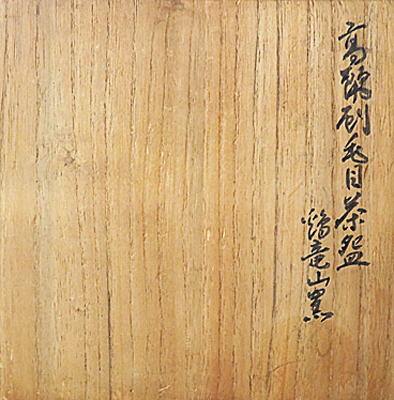 高麗刷毛目茶盌
鶏竜山窯